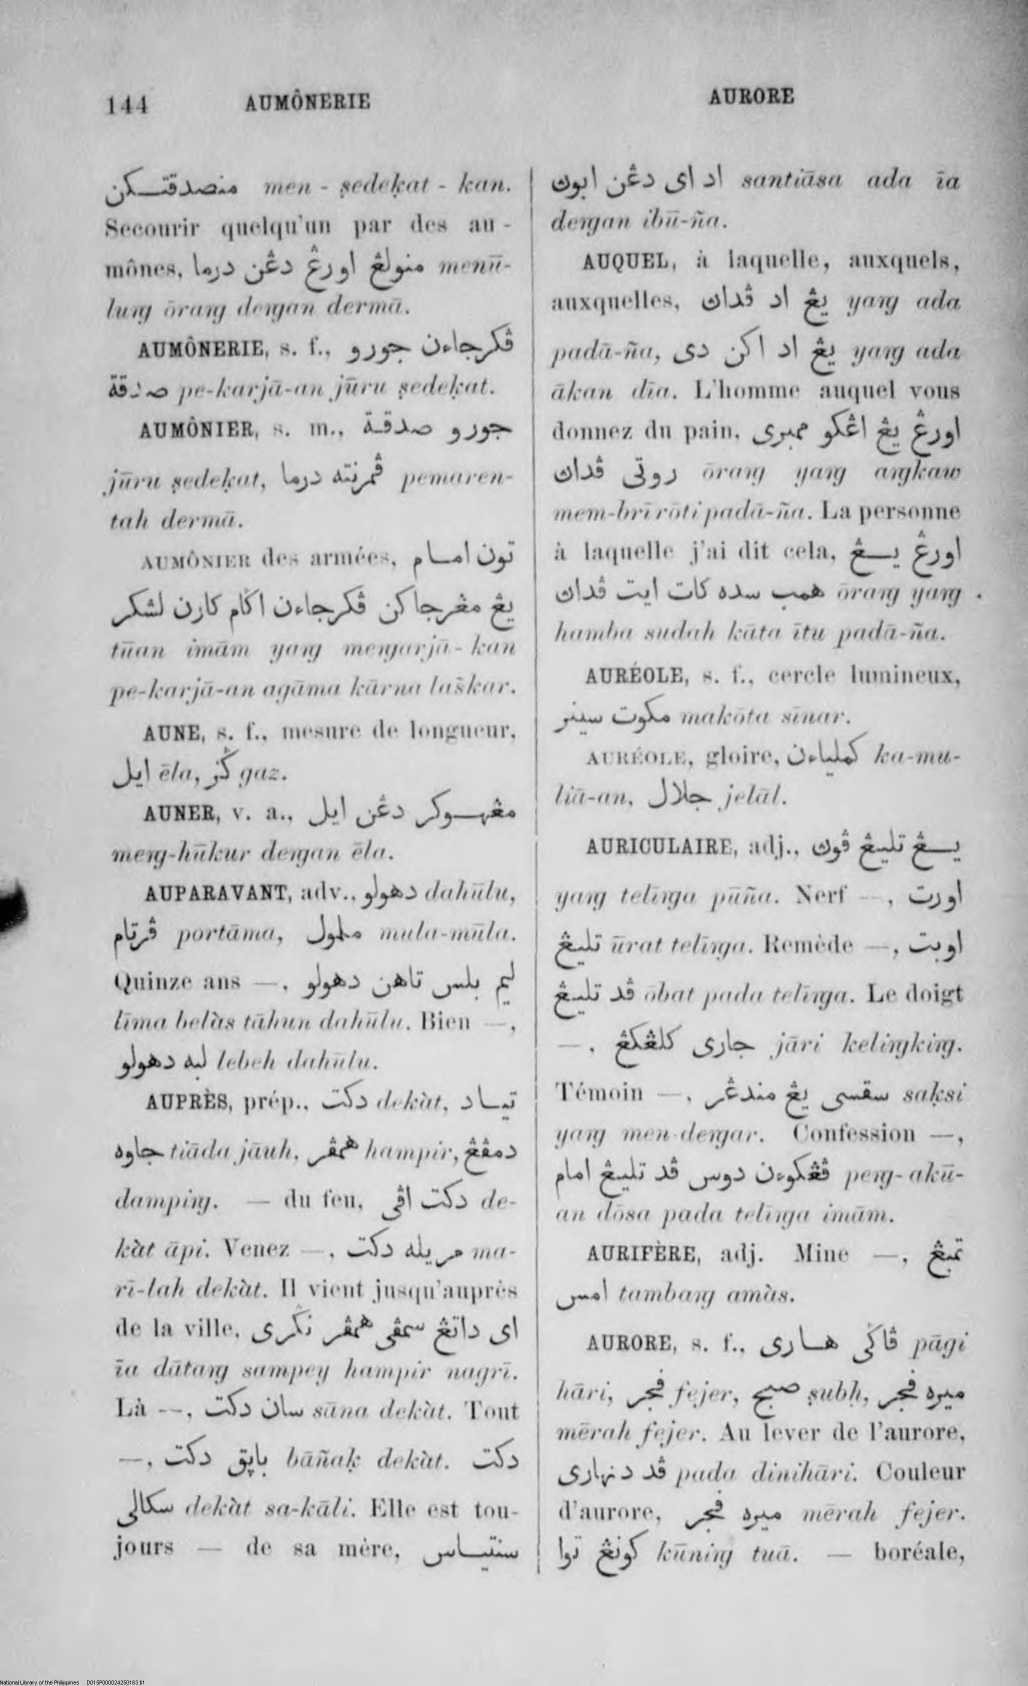 144 AUMÔNERIE AURORE
منصدقتكن men - ṣedeḳat - kan.
Secourir quelqu'un par des au-
mônes, منولڠ اورڠ دڠن درما menū-
lung ōrang dengan dermā.
AUMÔNERIE, s. f., ڤكرجاءن جورو
صدقة pe-karjā-an jūru ṣedeḳat.
AUMÔNIER, s. m., جورو صدقة
jūru ṣedeḳat, ڤمرنته درما pemaren-
tah dermā.
AUMÔNIER des armées, تون امام
يڠ مڠرجاكن ڤكرجاءن اڬام كارن لشكر
tūan imām yang mengarjā-kan
pe-karjā-an agāma kārna laškar.
AUNE, s. f., mesure de longueur,
ايل ēla, ݢز gaz.
AUNER, v. a., مڠهوكر دڠن ايل
meng-hūkur dengan ēla.
AUPARAVANT, adv., دهولو dahūlu,
ڤرتام portāma, ململ mula-mūla.
Quinze ans —, ليم بلس تاهن دهولو
līma belàs tāhun dahūlu. Bien —,
لبه دهولو lebeh dahūlu.
AUPRÈS, prép., دكت dekàt, تياد
جاوه tiāda jāuh, همڤر hampir, دمڤڠ
damping. — du feu, دكت اڤي de-
kàt āpi. Venez —, مريله دكت ma-
rī-lah dekàt. Il vient jusqu'auprès
de la ville, اى داتڠ سمڤى همڤر نݢرى
īa dātang sampey hampir nagrī.
Là —, سان دكت sāna dekàt. Tout
—, باڽق دكت bāñaḳ dekàt. دكت
سكالى dekàt sa-kāli. Elle est tou-
jours — de sa mère, سنتياس
اد اى دڠن ابوڽ santiāsa ada īa
dengan ibū-ña.
AUQUEL, à laquelle, auxquels,
auxquelles, يڠ اد ڤداڽ yang ada
padā-ña, يڠ اد اكن دى yang ada
ākan dīa. L'homme auquel vous
donnez du pain, اورڠ يڠ اڠكو ممبرى
روتى ڤداڽ ōrang yang angkaw
mem-brī rōti padā-ña. La personne
à laquelle j'ai dit cela, اورڠ يڠ
همب سده كات ايت ڤداڽ ōrang yang
hamba sudah kāta ītu padā-ña.
AURÉOLE, s. f., cercle lumineux,
مكوت سينر makōta sīnar.
AURÉOLE, gloire, كملياءن ka-mu-
liā-an, جلال jelāl.
AURICULAIRE, adj., يڠ تليڠ ڤوڽ
yang telīnga pūña. Nerf —, اورت
تليڠ ūrat telīnga. Remède —, اوبت
ڤد تليڠ ōbat pada telīnga. Le doigt
—, جارى كلڠكڠ jāri kelingking.
Témoin —, سقسى يڠ مندڠر saḳsi
yang men-dengar. Confession —,
ڤڠكوءن دوس ڤد تليڠ امام peng-akū-
an dōsa pada telīnga imām.
AURIFÈRE, adj. Mine —, تمبڠ
امس tambang amàs.
AURORE, s. f., ڤاݢى هارى pāgi
hāri, فجر fejer, صبح ṣubḥ, ميره فجر
mērah fejer. Au lever de l'aurore,
ڤد دنهارى pada dinihāri. Couleur
d'aurore, ميره فجر mērah fejer.
كونڠ توا kūning tuā. — boréale,
National Library of the Philippines